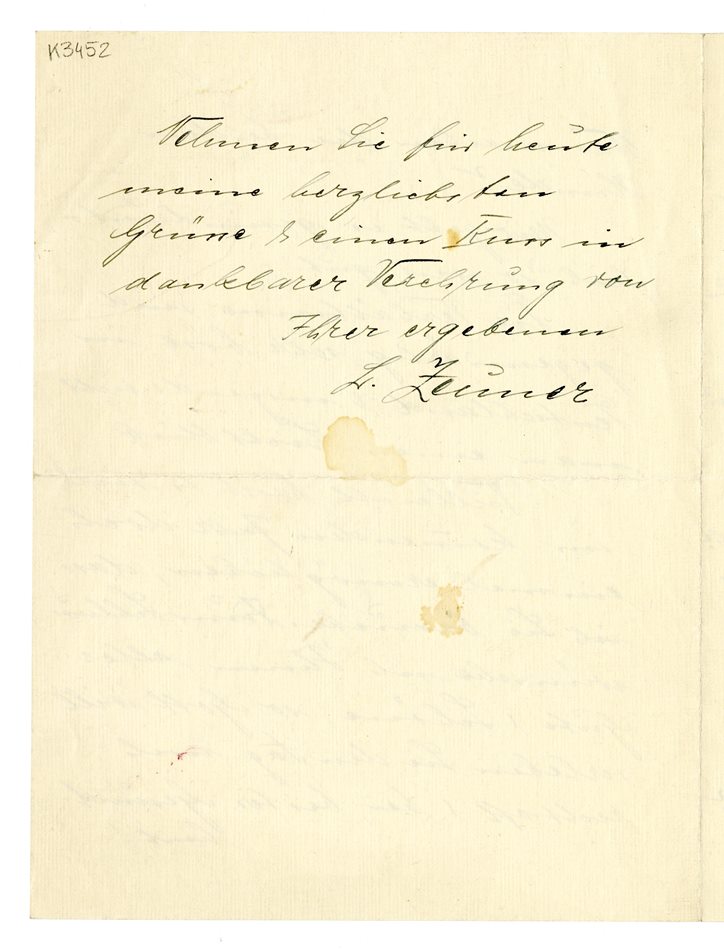 K3452
Nehmen Sie für heute
meine herzlichsten
Grüsse & einen Kuss in
dankbarer Verehrung von
Ihrer ergebenen
L. Zeuner